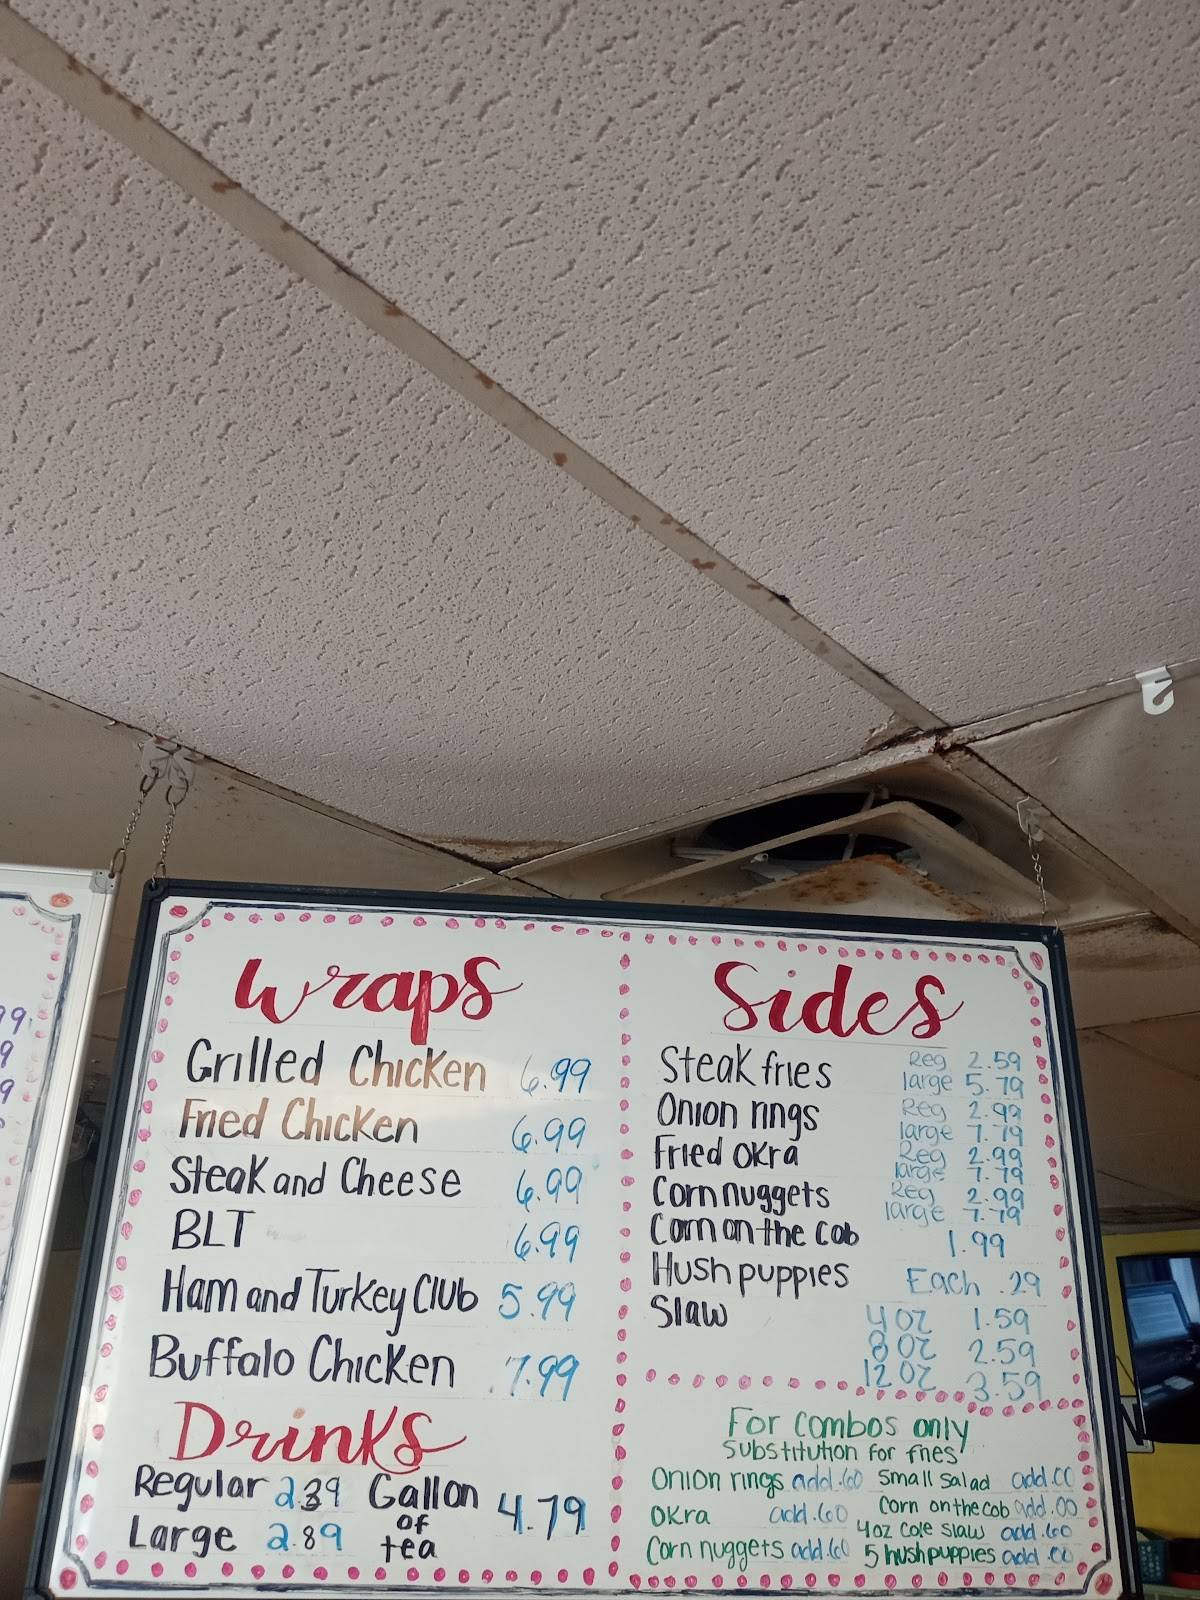 Wraps
Grilled Chicken 6.99
Fried Chicken 6.99
Steak and Cheese 6.99
BLT 6.99
Ham and Turkey Club 5.99
Buffalo Chicken 7.99
Drinks
Regular 2.39
Large 2.89
Gallon of tea 4.79
Sides
Steak fries Reg 2.59
large 5.79
Onion rings Reg 2.99
large 7.79
Fried Okra Reg 2.99
large 7.79
Corn nuggets Reg 2.99
large 7.79
Corn on the cob 1.99
Hush puppies Each .29
Slaw 4oz 1.59
8oz 2.59
12oz 3.59
For combos only
substitution for fries
Onion rings add .60 Small Salad add
Okra add .60 Corn on the cob add
Corn nuggets add .60 4oz Cole slaw add .60
5 hushpuppies add